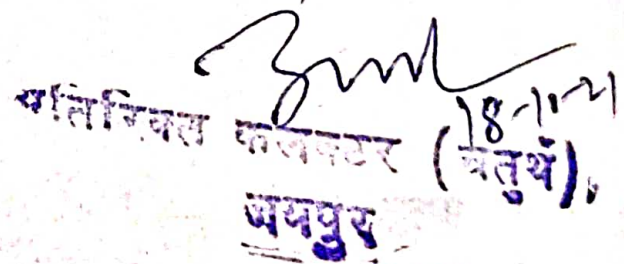 18-11-21
अतिरिक्त कलक्टर (चतुर्थ),
जयपुर